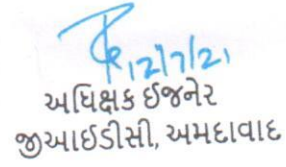 12/7/21
અધિક્ષક ઈજનેર
જીઆઈડીસી, અમદાવાદ